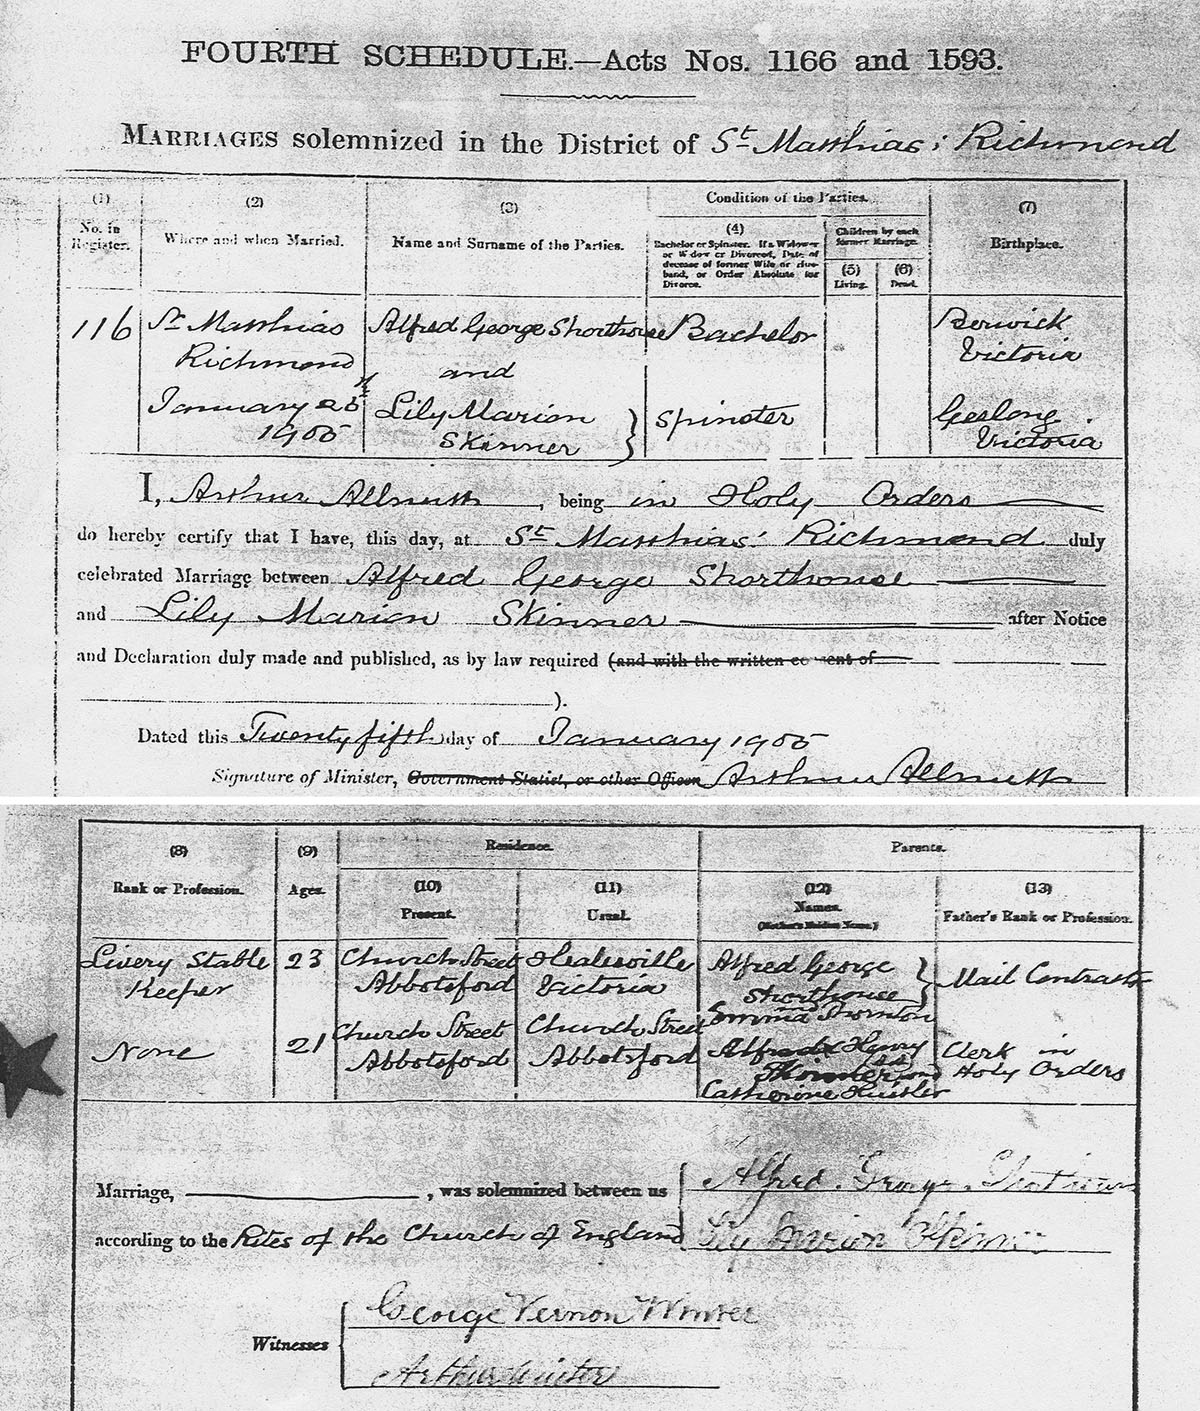 FOURTH SCHEDULE.—Acts Nos. 1166 and 1593.
MARRIAGES solemnized in the District of St Matthias; Richmond
(1)
No. in
Register.
(2)
Where and when Married.
(3)
Name and Surname of the Parties.
Condition of the Parties.
(4)
Bachelor or Spinster. If a Widower
or Widow or Divorced, Date of
decease of former Wife or Hus-
band, or Order Absolute for
Divorce.
Children by each
former Marriage.
(5)
Living.
(6)
Dead.
(7)
Birthplace.
116
St Matthias
Richmond
January 25
1905
Alfred George Shorthouse
and
Lily Marion
Skinner
Bachelor
Spinster
Berwick
Victoria
Geelong
Victoria
I, Arthur , being in Holy Orders
do hereby certify that I have, this day, at St Matthias' Richmond duly
celebrated Marriage between Alfred George Shorthouse
and Lily Marion Skinner after Notice
and Declaration duly made and published, as by law required (and with the written consent of
).
Dated this Twenty fifth day of January 1905
Signature of Minister, Government Statist, or other Officer Arthur
(8)
Rank or Profession.
(9)
Ages.
Residence.
(10)
Present.
(11)
Usual.
Parents.
(12)
Names.
(Mother's Maiden Name.)
(13)
Father's Rank or Profession.
Livery Stable
Keeper
23
Church Street
Abbotsford
Healesville
Victoria
Alfred George
Shorthouse
Emma Thornton
Mail Contractor
None
21
Church Street
Abbotsford
Church Street
Abbotsford
Alfred Henry
Skinner and
Catherine Hustler
Clerk in
Holy Orders
Marriage, , was solemnized between us
Alfred George Shorthouse
according to the Rites of the Church of England
Lily Marion Skinner
Witnesses
George Vernon Winter
Arthur Winter